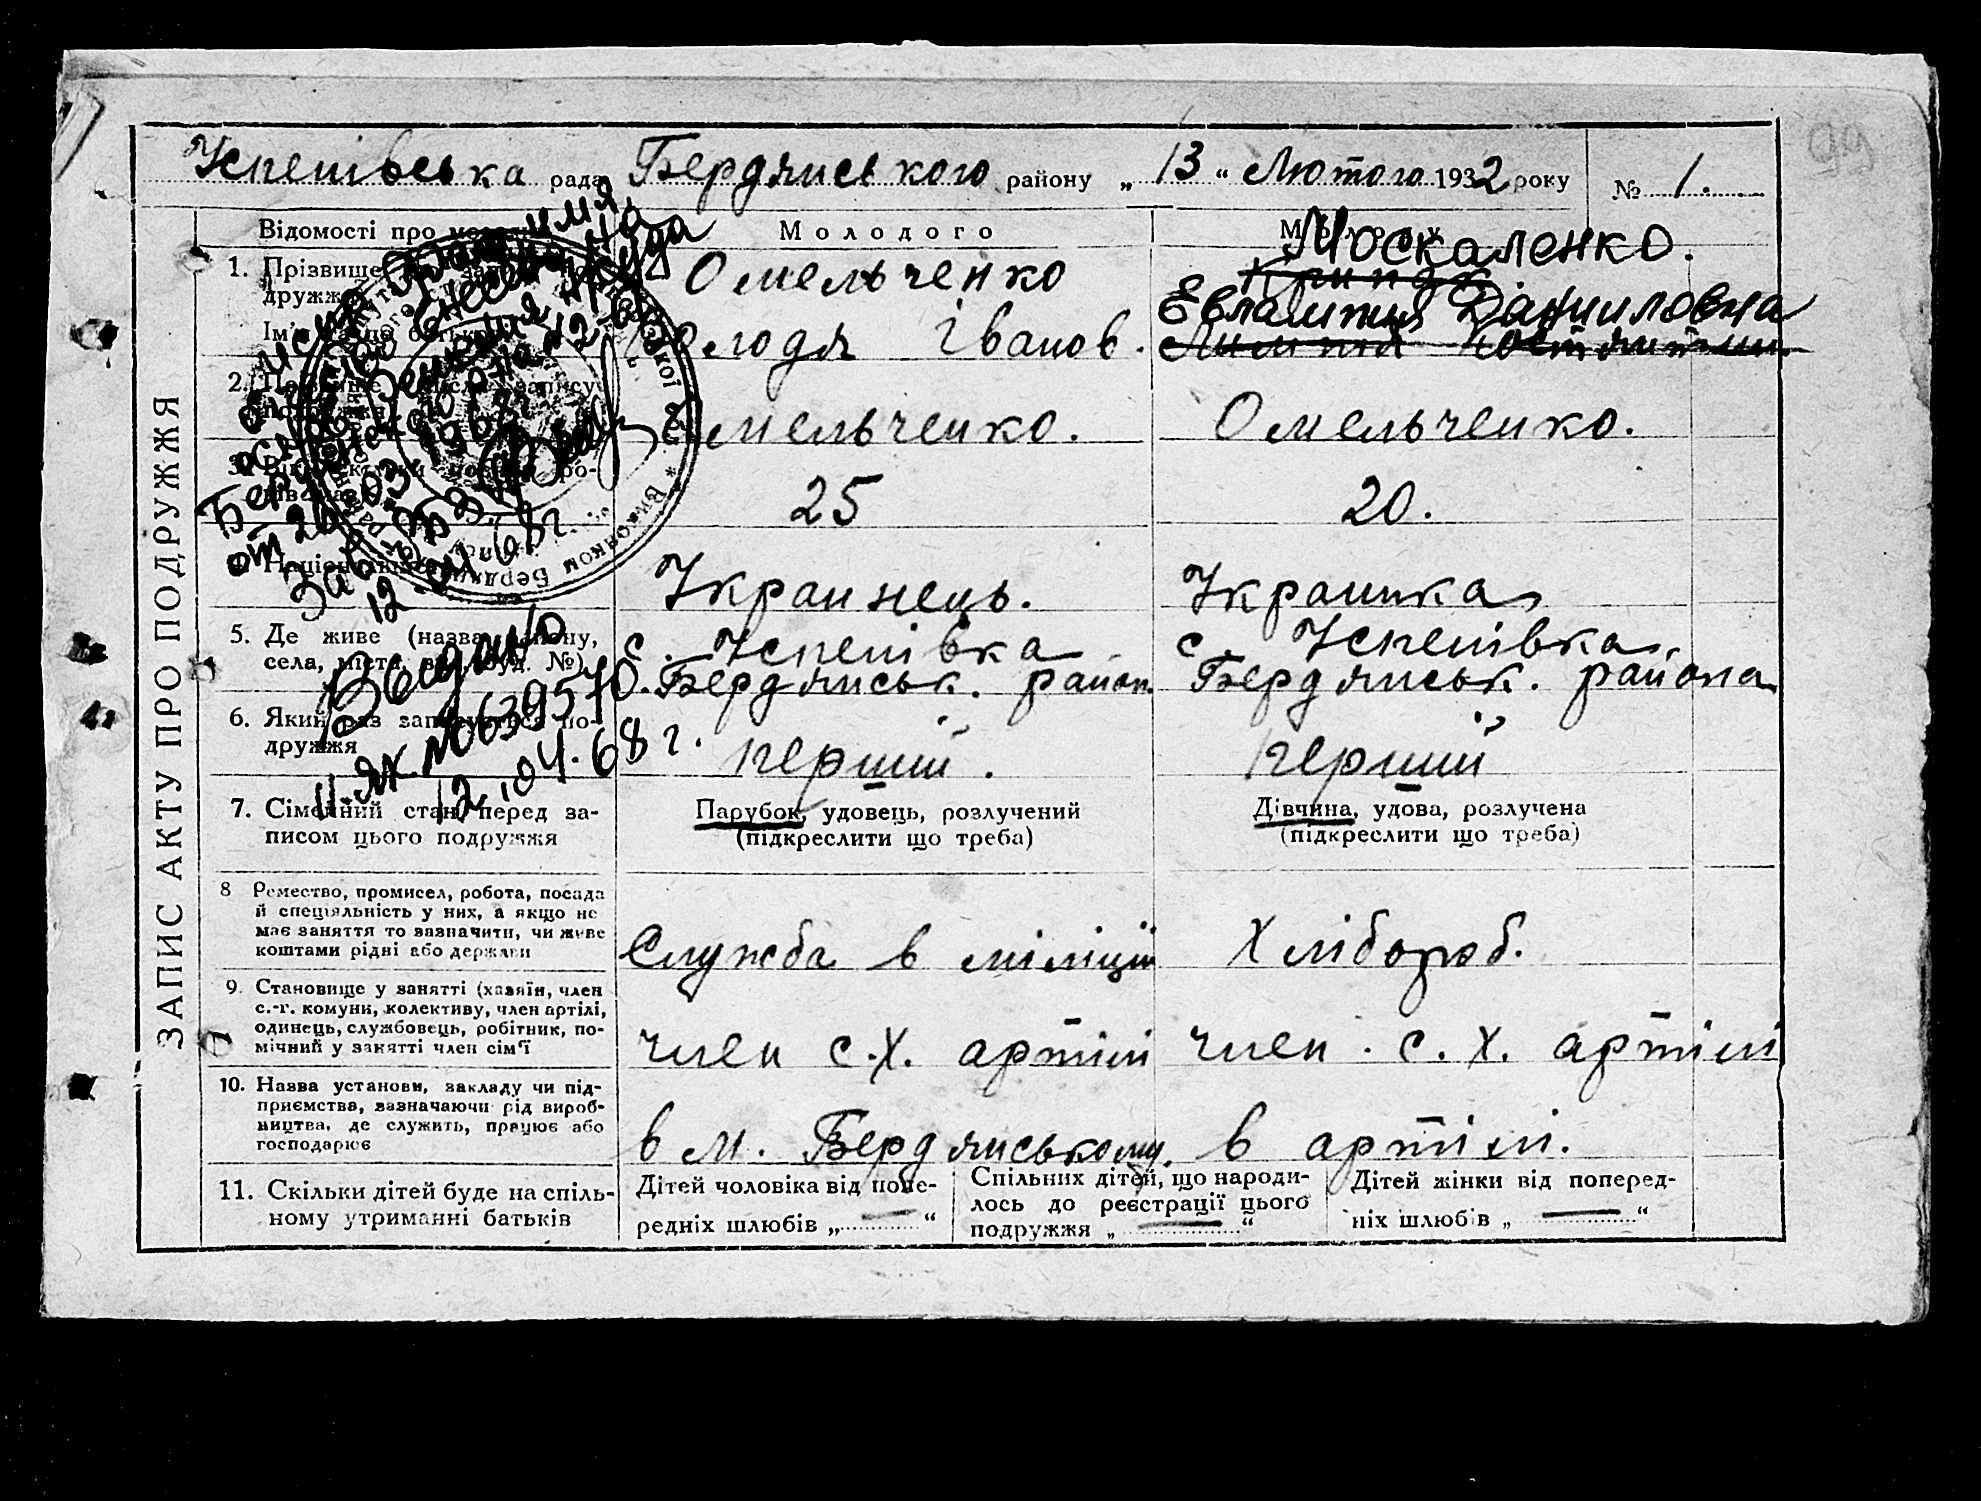 Успенівська рада Бердянського району „ 13 “ Лютого 1932 року № 1.
Відомості про
Молодого
1. Прізвище
дружжя
Омельченко
Москаленко.
Володя Іванов.
Евлампия Данииловна
2.
Омельченко.
Омельченко.
3.
25
20.
Украинець.
Украинка
5. Де живе (назва району,
села, міста, вул., буд. №)
с. Успенівка
Бердянськ. район.
с. Успенівка
Бердянськ. района
6. Який раз записується по-
дружжя
перший.
перший
7. Сімейний стан перед за-
писом цього подружжя
Парубок, удовець, розлучений
(підкреслити що треба)
Дівчина, удова, розлучена
(підкреслити що треба)
8 Ремество, промисел, робота, посада
й спеціяльність у них, а якщо не
має заняття то зазначити, чи живе
коштами рідні або держави
Служба в міліції
Хлібороб.
9. Становище у занятті (хазяїн, член
с.-г. комуни, колективу, член артілі,
одинець, службовець, робітник, по-
мічний у занятті член сім'ї
член с.х. артілі
член. с. х. артілі
10. Назва установи, закладу чи під-
приємства, зазначаючи рід вироб-
ництва, де служить, працює або
господарює
в м. Бердянському.
в артілі.
11. Скільки дітей буде на спіль-
ному утриманні батьків
Дітей чоловіка від попе-
редніх шлюбів „ — “
Спільних дітей, що народи-
лось до реєстрації цього
подружжя „ — “
Дітей жінки від поперед-
ніх шлюбів „ — “
ЗАПИС АКТУ ПРО ПОДРУЖЖЯ
Зав.
12.04.68 г.
Выдано
II-ЯК. № 639570.
12.04.68 г.